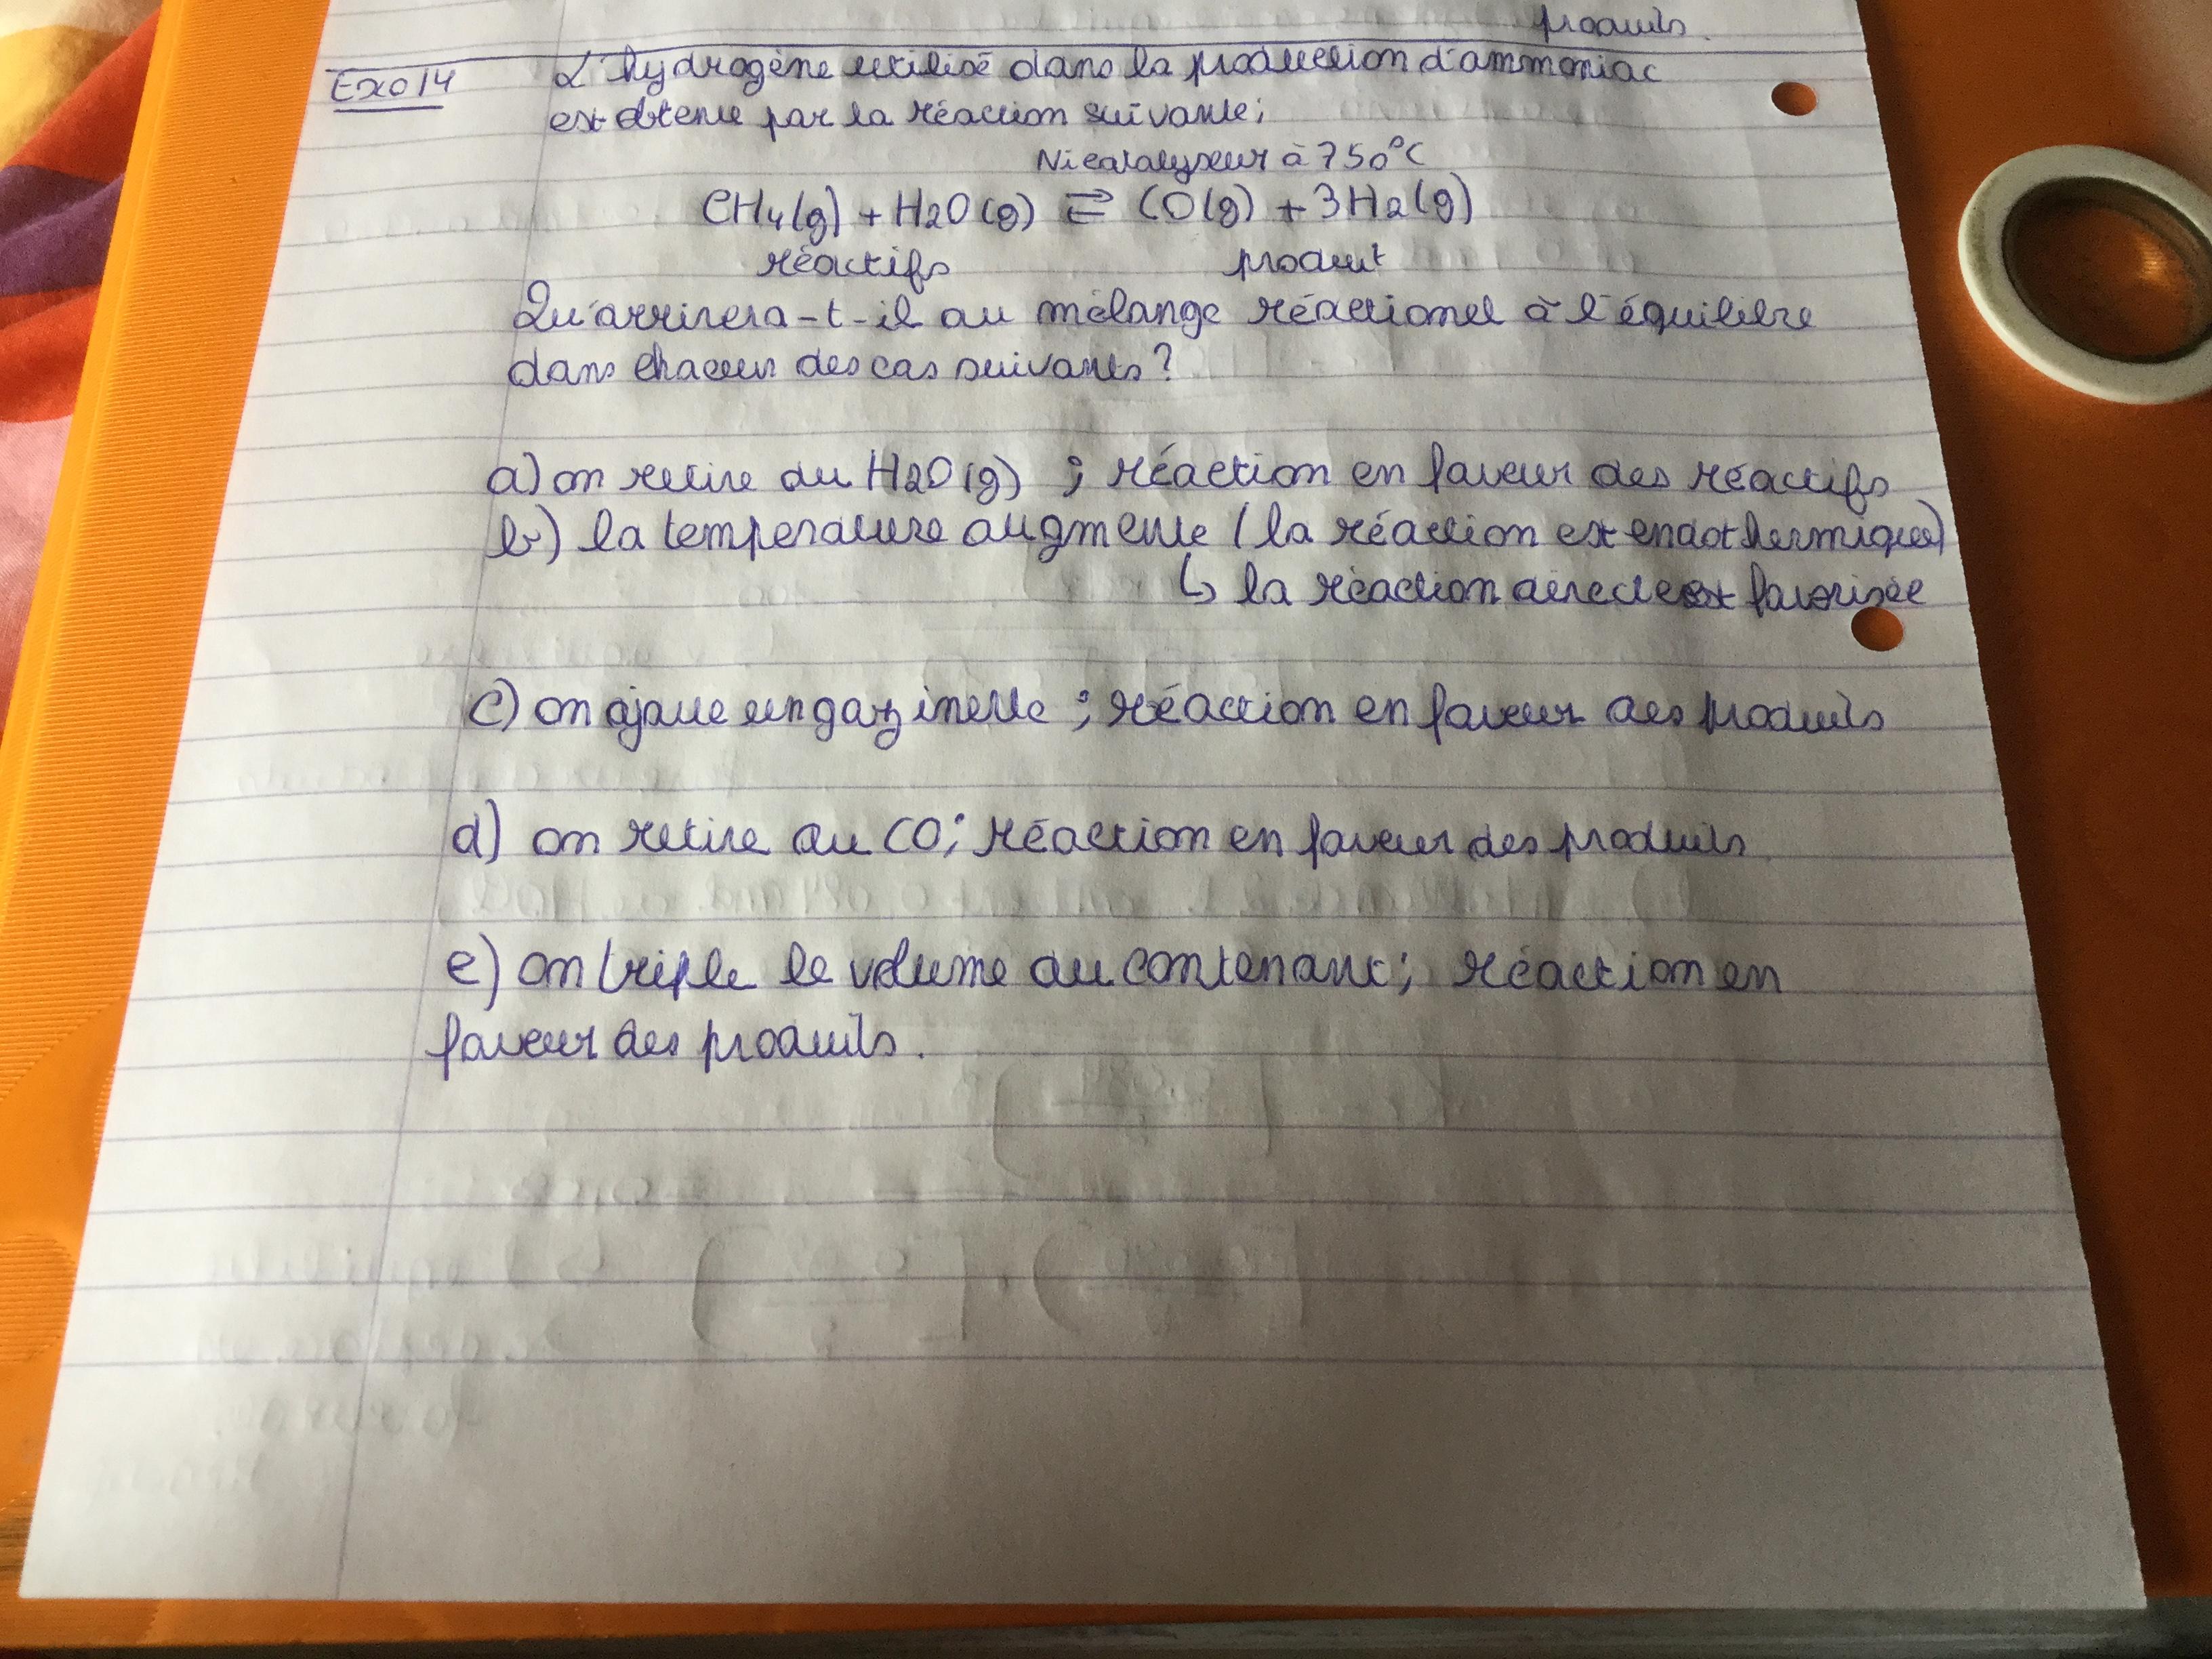 produits.
Exo 14 L'hydrogène utilisé dans la production d'ammoniac
est obtenu par la réaction suivante;
Ni catalyseur à 750°C
CH4(g) + H2O(g) ⇌ CO(g) + 3H2(g)
réactifs produit
Qu'arrivera-t-il au mélange réactionel à l'équilibre
dans chacun des cas suivants?
a) on retire du H2O(g) ; réaction en faveur des réactifs
b) la température augmente (la réaction est endothermique)
↳ la réaction directe est favorisée
c) on ajoute un gaz inerte ; réaction en faveur des produits
d) on retire du CO; réaction en faveur des produits.
e) on triple le volume du contenant; réaction en
faveur des produits.